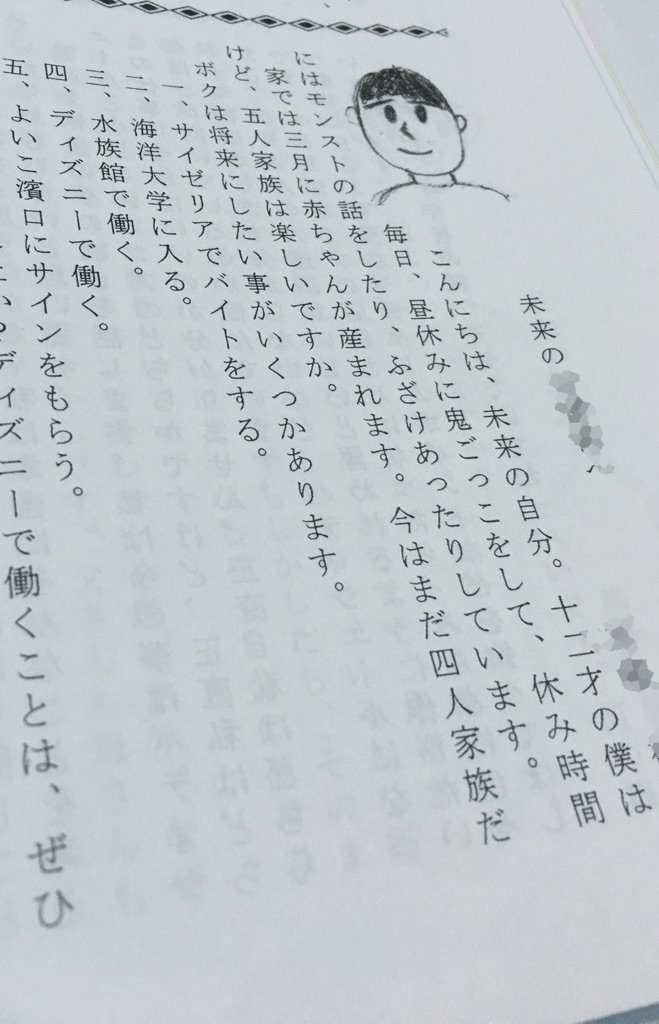 未来の
こんにちは、未来の自分。十二才の僕は
毎日、昼休みに鬼ごっこをして、休み時間
にはモンストの話をしたり、ふざけあったりしています。
家では三月に赤ちゃんが産まれます。今はまだ四人家族だ
けど、五人家族は楽しいですか。
ボクは将来にしたい事がいくつかあります。
一、サイゼリアでバイトをする。
二、海洋大学に入る。
三、水族館で働く。
四、ディズニーで働く。
五、よいこ濱口にサインをもらう。
ディズニーで働くことは、ぜひ